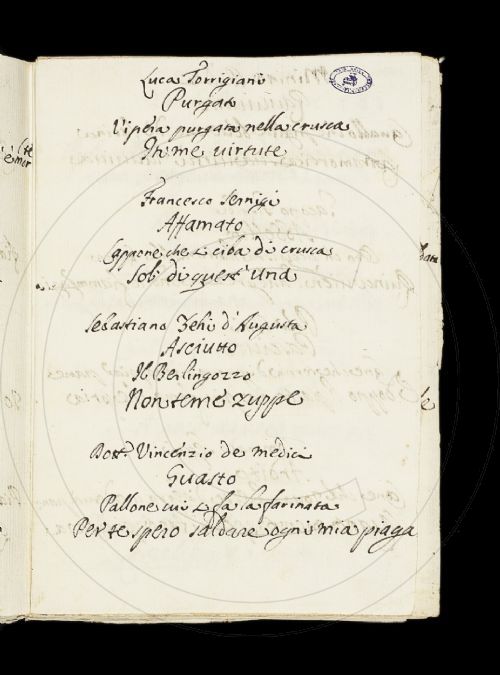 Luca Torrigiani
Purgata
Vipera purgata nella crusca
In me virtute
Francesco Sernigi
Affamato
Cappone che si ciba di crusca
Sol' di quest' una
Sebastiano Zehi d'Augusta
Asciutto
Il Berlingozzo
Non teme zuppe
Dott.r Vincenzio de medici
Guasto
Pallone cui si fa la farinata
Per te spero saldare ogni mia piaga